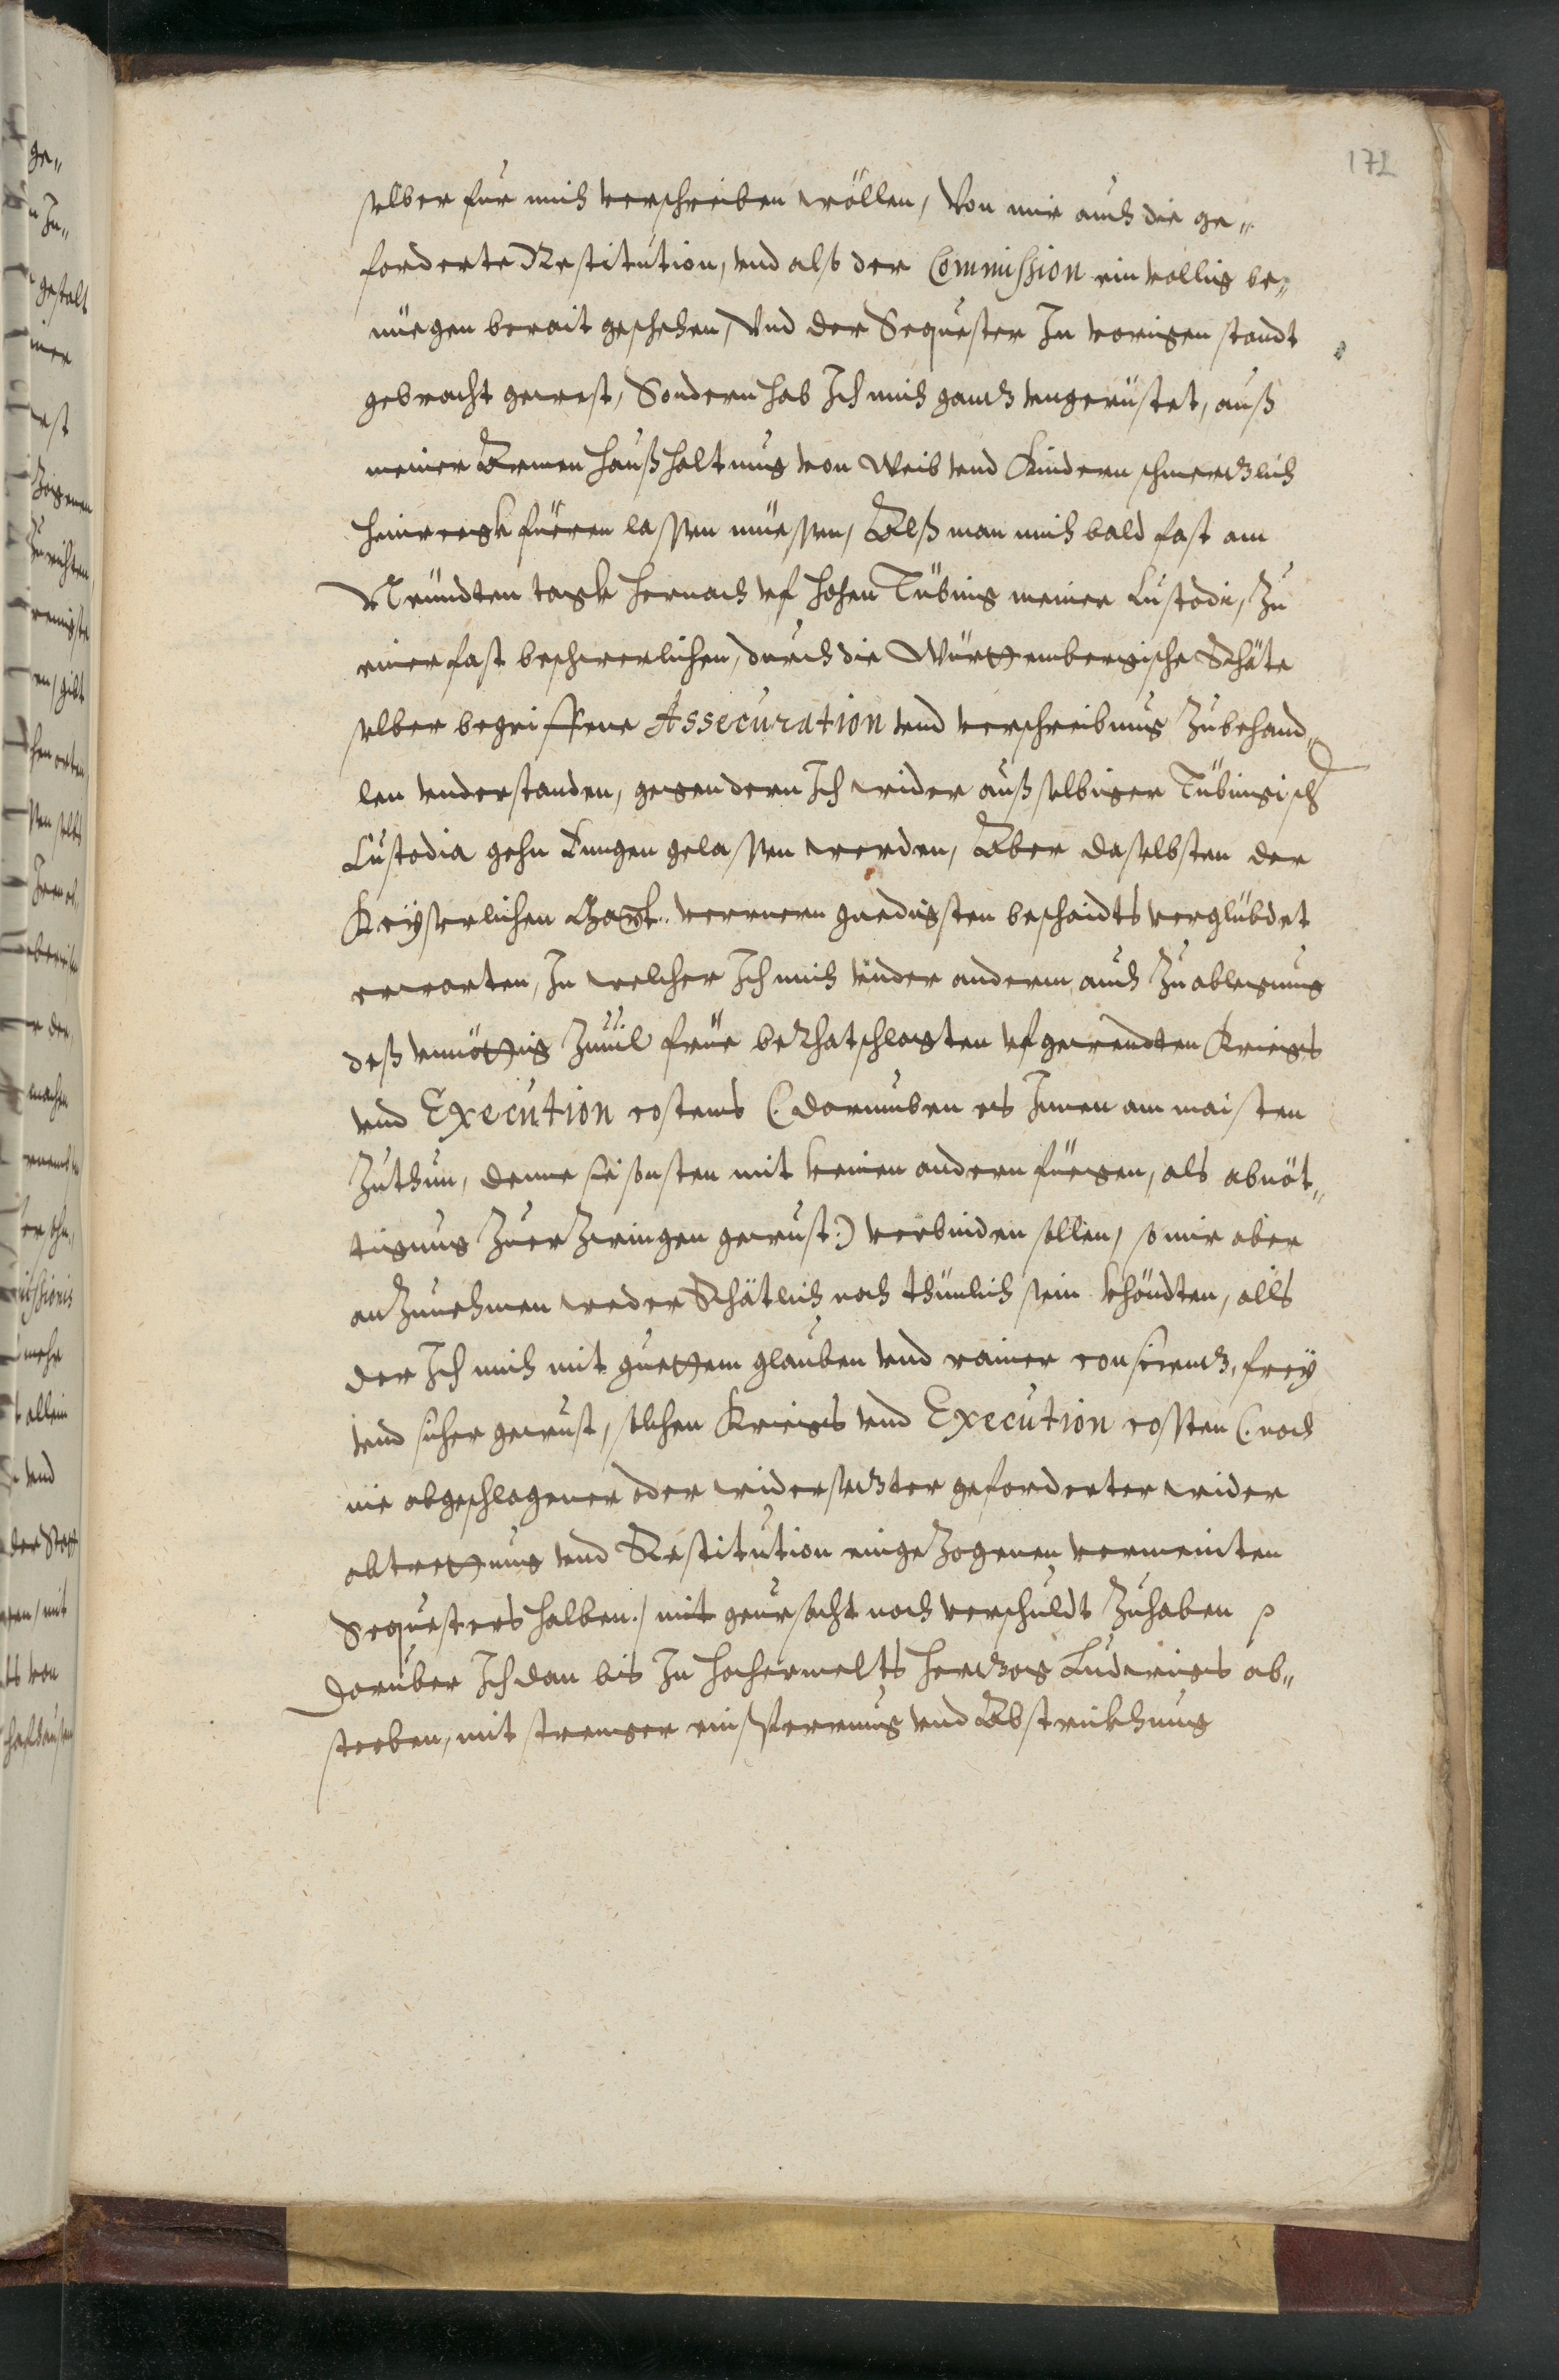 172
selber für mich verschreiben wöllen, Von mir auch die ge„
forderte Restitution, vnd alß der Commission ein völlig be„
nüegen berait geschehen, Vnd der Sequester In vorigen standt
gebracht gewest, Sondern hab Ich mich gantz vngerüstet, auß
meiner Armen Haußhaltung von Weib vnd Kindern schmertzlich
hinwegk füeren lassen müessen, Alß man mich bald fast am
Neündten tagk hernach vf Hohen Tübing meiner Custodi, zu
einer fast beschwerlichen, durch die Württembergische Rhäte
selber begriffene Assecuration vnd verschreibung zubehand„
len vnderstanden, gegen dern Ich wider auß selbiger Tübingisch
Custodia gehn gelassen werden, Aber daselbsten der
Keyserlichen Mayt. verrnern gnedigsten beschaidts verglübdet
erwarten, In welcher Ich mich vnder anderm auch zu ablegung
deß vnnöttig zuuil früe berhatschlagten vfgewendten Kriegs
vnd Execution costens (: darumben es Innen am maisten
zuthun, denne sie sonsten mit keinen andern füegen, als abnöt„
tigung zuer zwingen gewust :) verbinden sollen, so mir aber
anzunehmen weder Rhätlich noch thünlich sein khöndten, alls
der Ich mich mit guettem glauben vnd rainer conscientz, frey
vnd sicher gewust, solchen Kriegs vnd Execution costen (: noch
nie abgeschlagener oder widersetzter geforderter wider
abtrettung vnd Restitution eingezogenen vermeinten
Sequesters halben :) nit geursacht noch verschuldt zuhaben
Darüber Ich dan bis In hochermelts Hertzog Ludwigs ab„
sterben, mit strenger einsperrung vnd Abstrickhung